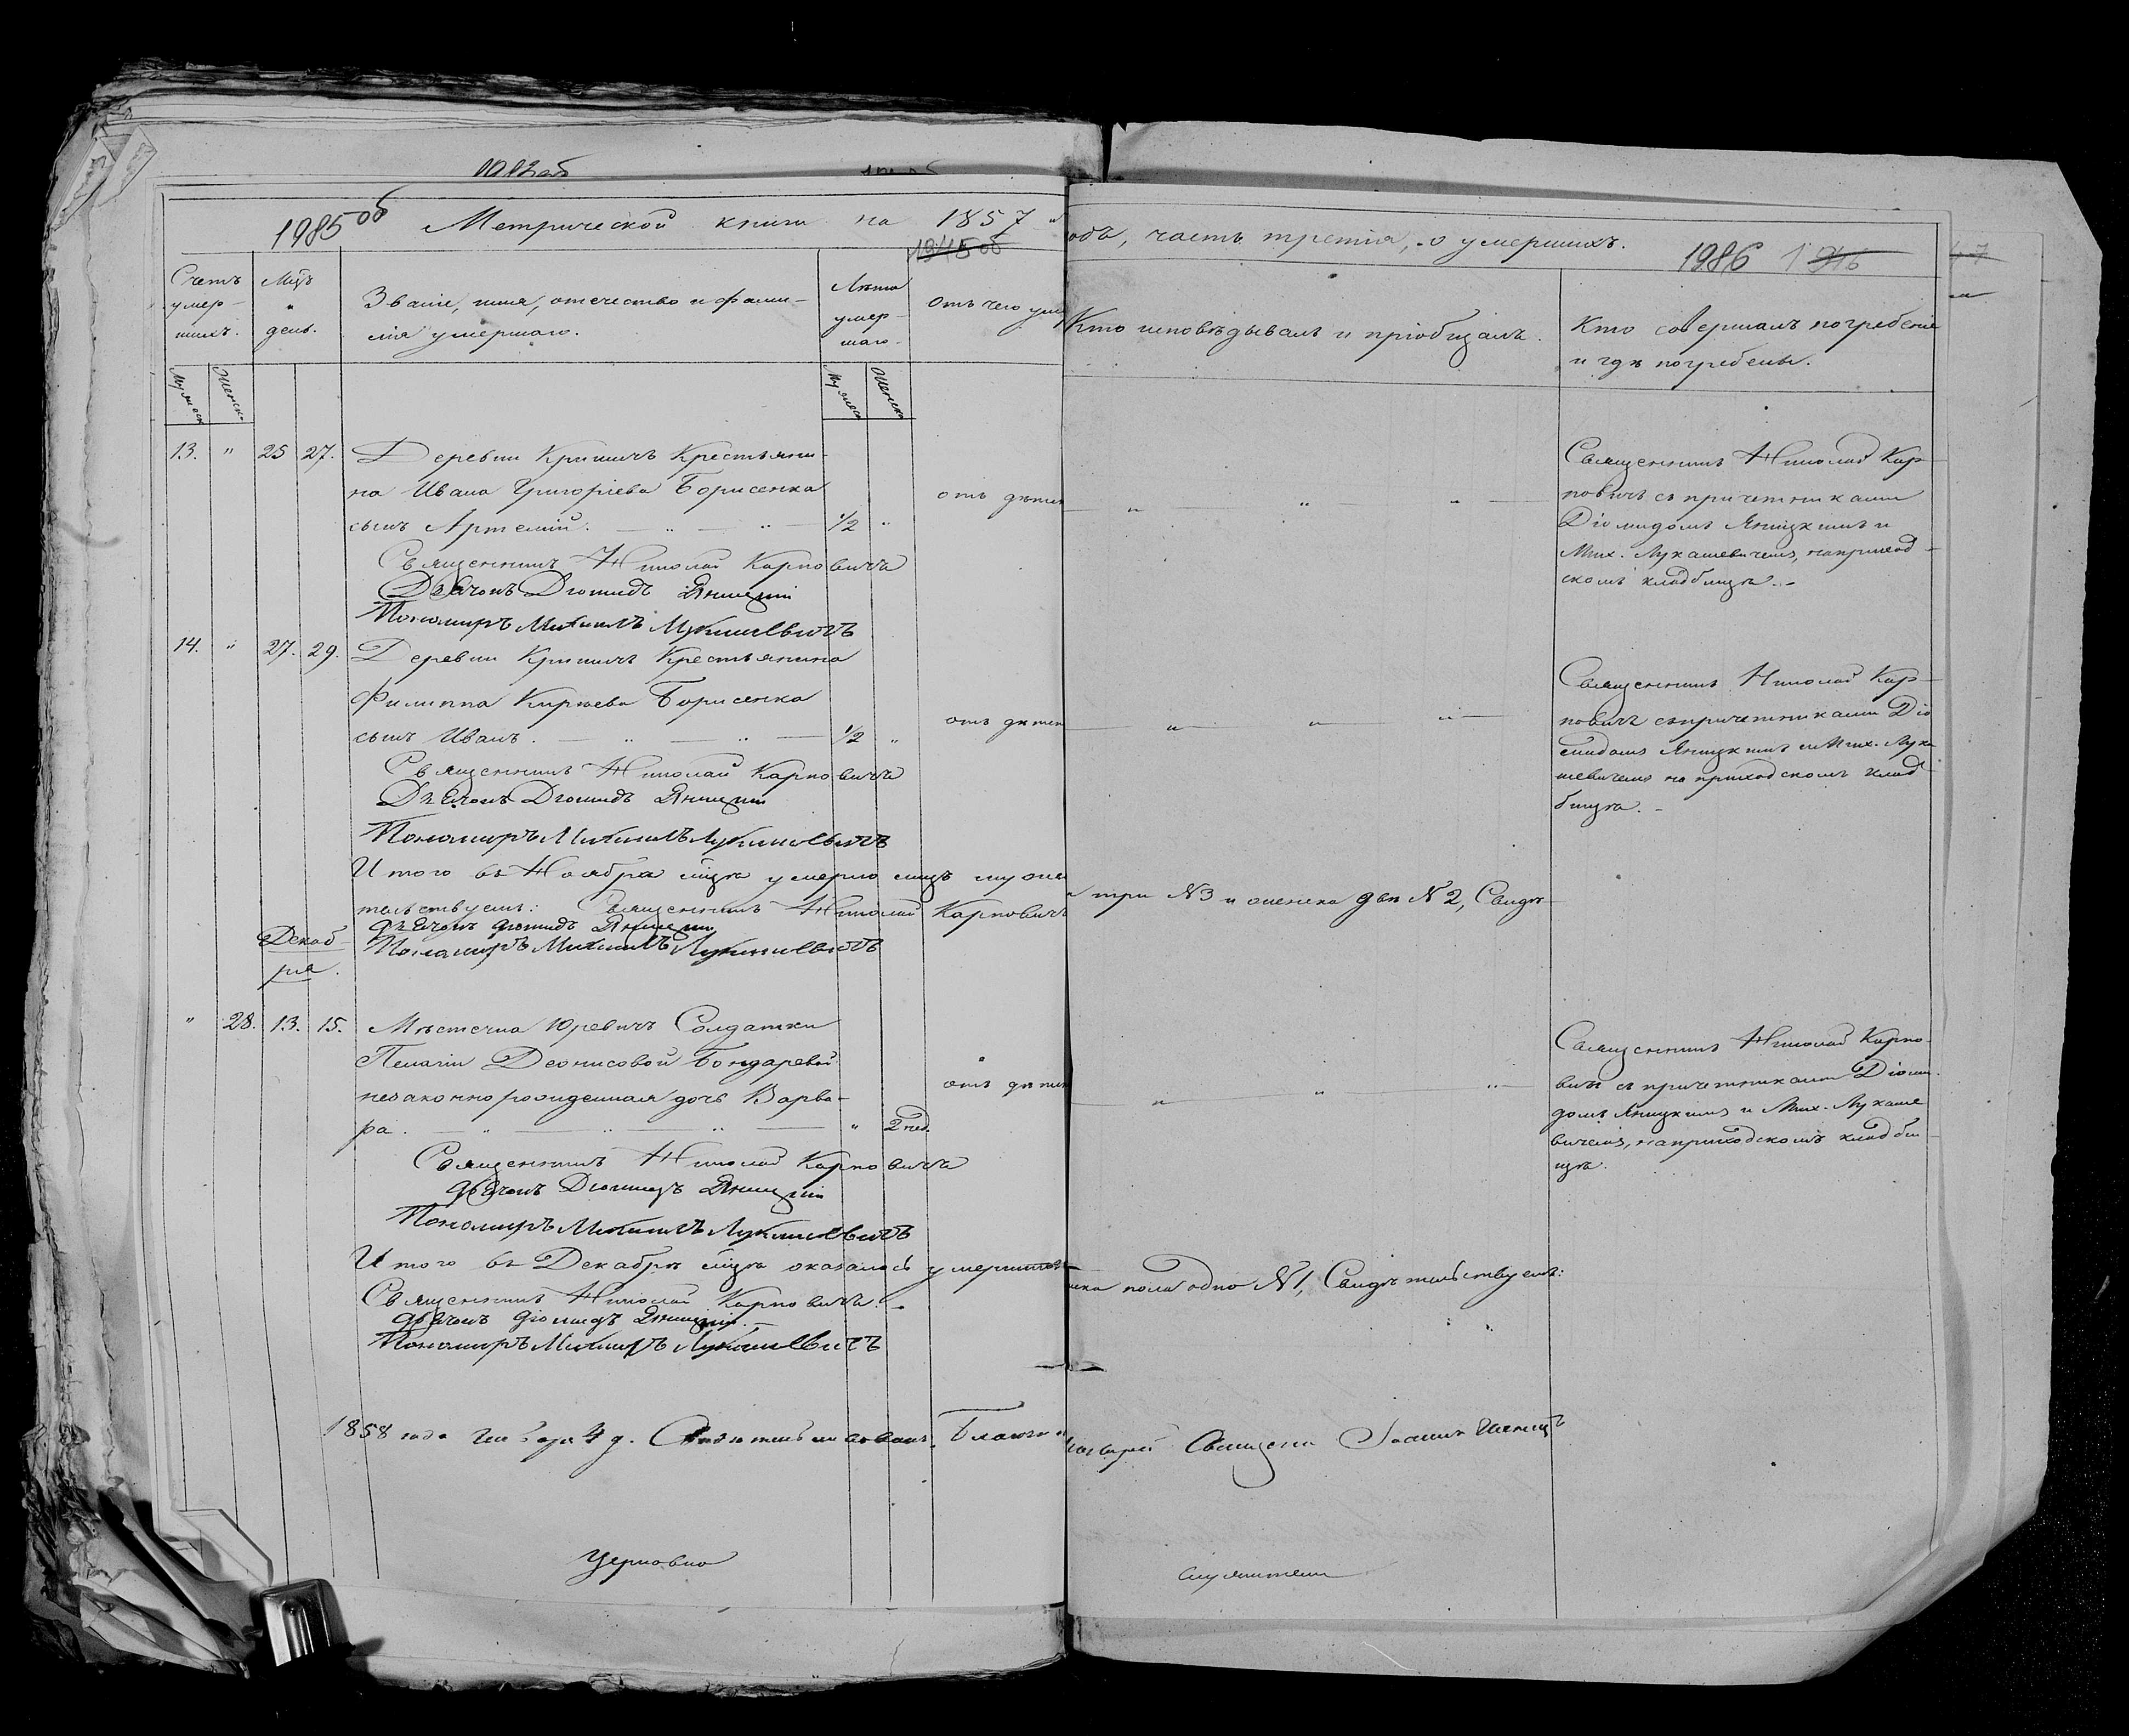 1985 об Метрической книги на 1857
одъ, часть третія, о умершихъ.
1945 об
1986
1946
Счетъ умер-
шихъ.
Мцъ
и
день.
Званіе, имя, отечество и фами-
лія умершаго.
Лѣта
умер-
шаго.
Отъ чего уме
Кто исповѣдывалъ и пріобщалъ.
Кто совершалъ погребеніе
и гдѣ погребены.
Мужеск
Женск.
Мужеск
Женск
13. " 25 27. Деревни Кришичъ Крестьяни-
на Ивана Григорієва Борисенка
сынъ Артемій. 1/2 "
отъ дѣтск
Священникъ Николай Карповичъ
Дьячокъ Діомидъ Яницкій
Пономаръ Михаилъ Лукашевичъ
Священникъ Николай Кар-
повичъ съ причетниками
Діомидомъ Яницкимъ и
Мих. Лукашевичемъ, на приход-
скомъ кладбищѣ.
14. " 27. 29. Деревни Кришичъ Крестьянина
Филиппа Кирѣева Борисенка
сынъ Иванъ. 1/2 "
отъ дѣтск
Священникъ Николай Карповичъ
Дьячокъ Діомидъ Яницкій
Пономаръ Михаилъ Лукашевичъ
Священникъ Николай Кар-
повичъ съ причетниками Діо
мидомъ Яницкимъ и Мих. Лука
шевичемъ на приходскомъ клад-
бищѣ.
Итого въ Ноября мцѣ умерло лицъ муже
три №3 и женска двѣ №2, Свидѣ-
тельствуемъ: Священникъ Николай Карповичъ
Дьячокъ Діомидъ Яницкій
Пономаръ Михаилъ Лукашевичъ
Декаб-
ря.
" 28. 13. 15. Мѣстечка Юревичъ Солдатки
Пелагіи Деонисовой Бондаревой
незаконнорожденная дочь Варва-
ра. " 2 нед.
отъ дѣтск
Священникъ Николай Карповичъ
Дьячокъ Діомидъ Яницкій
Пономаръ Михаилъ Лукашевичъ
Священникъ Николай Карпо-
вичъ съ причетниками Діоми-
домъ Яницкимъ и Мих. Лукаше
вичемъ, на приходскомъ кладби-
щѣ.
Итого въ Декабрѣ мцѣ оказалось умершихъ
ска пола одно №1, Свидѣтельствуемъ:
Священникъ Николай Карповичъ.
Дьячокъ Діомидъ Яницкій.
Пономаръ Михаилъ Лукашевичъ
1858 года Января 4 д. Свидѣтельствовалъ Благочи
Священ Іоаннъ
Церковно
служители